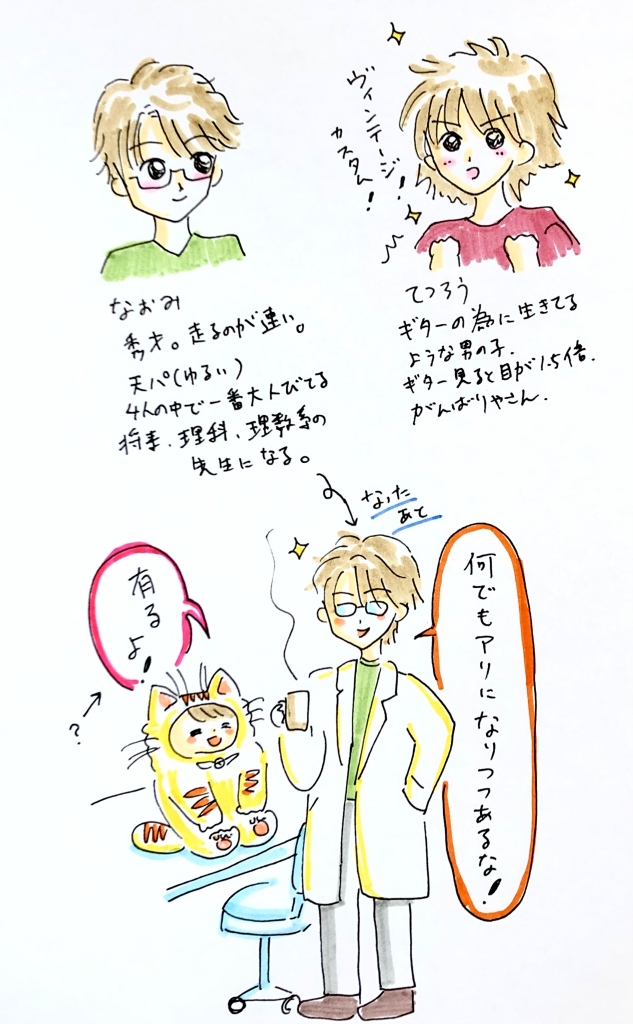 なおみ
秀才。走るのが速い。
天パ(ゆるい)
4人の中で一番大人びてる
将来、理科、理数系の
先生になる。
ヴィンテージ!
カスタム!
てつろう
ギターの為に生きてる
ような男の子.
ギター見ると目が1.5倍.
がんばりやさん.
なった
あと
何でもアリになりつつあるな!
有る
よ!
?